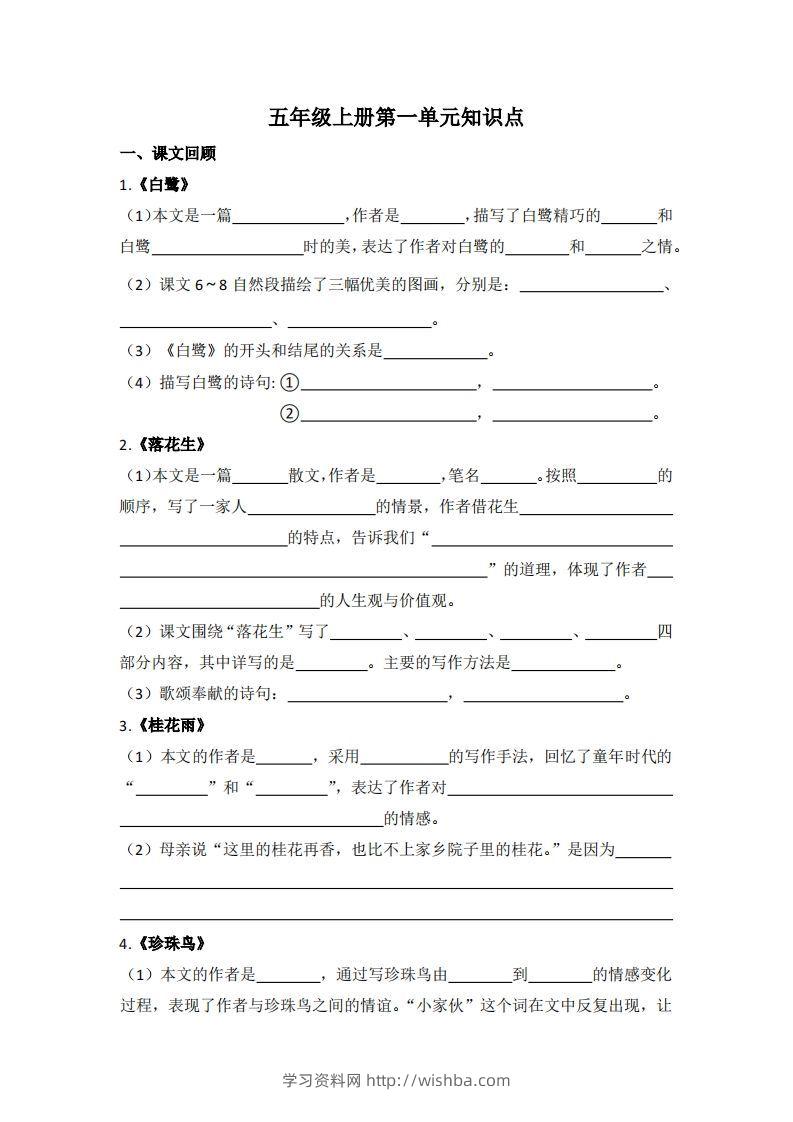 五年级上册第一单元知识点
一、课文回顾
1.《白鹭》
（1）本文是一篇______________，作者是________，描写了白鹭精巧的_______和
白鹭___________________时的美，表达了作者对白鹭的________和_______之情。
（2）课文 6～8 自然段描绘了三幅优美的图画，分别是：__________________、
___________________、__________________。
（3）《白鹭》的开头和结尾的关系是_____________。
（4）描写白鹭的诗句：①______________________，____________________。
②______________________，____________________。
2.《落花生》
（1）本文是一篇_______散文，作者是________，笔名_______。按照__________的
顺序，写了一家人________________的情景，作者借花生___________________
_____________________的特点，告诉我们“______________________________
______________________________________________”的道理，体现了作者___
_________________________的人生观与价值观。
（2）课文围绕“落花生”写了_________、_________、_________、_________四
部分内容，其中详写的是_________。主要的写作方法是_____________。
（3）歌颂奉献的诗句：____________________，____________________。
3.《桂花雨》
（1）本文的作者是_______，采用___________的写作手法，回忆了童年时代的
“_________”和“_________”，表达了作者对____________________________
_________________________________的情感。
（2）母亲说“这里的桂花再香，也比不上家乡院子里的桂花。”是因为_______
_____________________________________________________________________
_____________________________________________________________________
4.《珍珠鸟》
（1）本文的作者是________，通过写珍珠鸟由________到________的情感变化
过程，表现了作者与珍珠鸟之间的情谊。“小家伙”这个词在文中反复出现，让
学习资料网 http://wishba.com